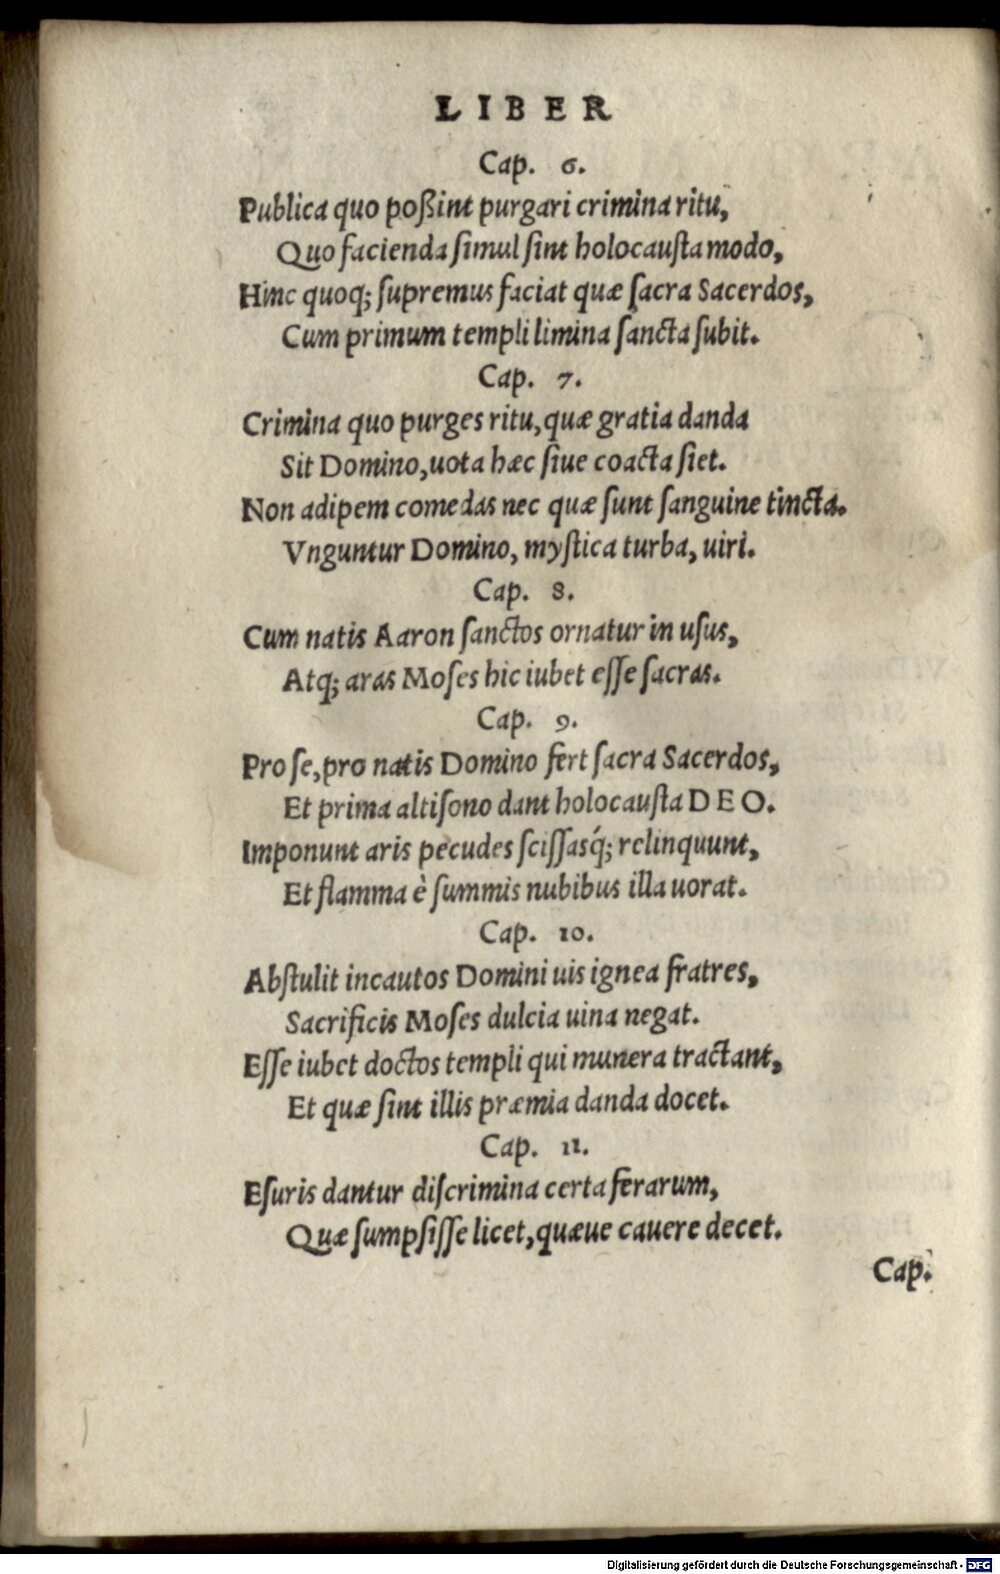 LIBER
Cap. 6.
Publica quo poßint purgari crimina ritu,
Quo facienda ſimul ſint holocauſta modo,
Hinc quoq; ſupremus faciat quæ ſacra Sacerdos,
Cum primum templi limina ſancta ſubit.
Cap. 7.
Crimina quo purges ritu, quæ gratia danda
Sit Domino, uota hæc ſiue coacta ſiet.
Non adipem comedas nec quæ ſunt ſanguine tincta.
Vnguntur Domino, myſtica turba, uiri.
Cap. 8.
Cum natis Aaron ſanctos ornatur in uſus,
Atq; aras Moſes hic iubet eſſe ſacras.
Cap. 9.
Pro ſe, pro natis Domino fert ſacra Sacerdos,
Et prima altiſono dant holocauſta DEO.
Imponunt aris pecudes ſciſſasq́; relinquunt,
Et flamma è ſummis nubibus illa uorat.
Cap. 10.
Abſtulit incautos Domini uis ignea fratres,
Sacrificis Moſes dulcia uina negat.
Eſſe iubet doctos templi qui munera tractant,
Et quæ ſint illis præmia danda docet.
Cap. 11.
Eſuris dantur diſcrimina certa ferarum,
Quæ ſumpſiſſe licet, quæue cauere decet.
Cap.
Digitalisierung gefördert durch die Deutsche Forschungsgemeinschaft - DFG